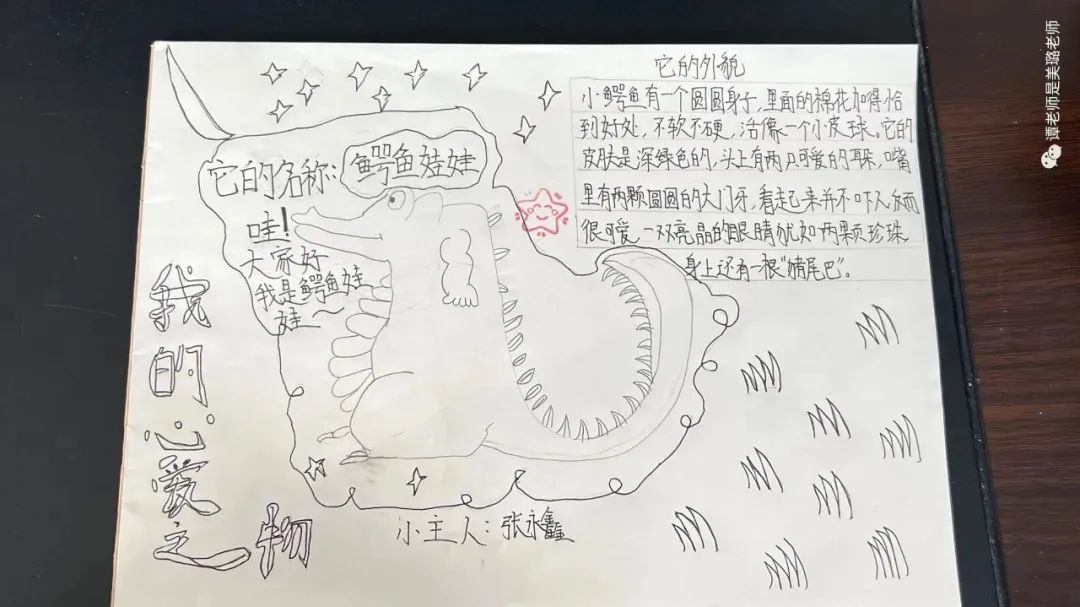 我的心爱之物
它的名称:鳄鱼娃娃
哇!
大家好
我是鳄鱼娃
娃~
它的外貌
小鳄鱼有一个圆圆身子,里面的棉花加得恰
到好处,不软不硬,活像一个小皮球。它的
皮肤是深绿色的,头上有两只可爱的耳朵,嘴
里有两颗圆圆的大门牙,看起来并不吓人反而
很可爱,一双亮晶的眼睛犹如两颗珍珠
身上还有一根“猪尾巴”。
小主人:张永鑫
谭老师是美璐老师